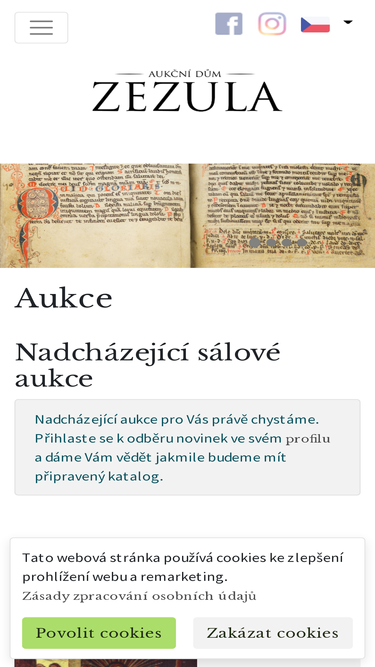 AUKČNÍ DŮM
ZEZULA
Aukce
Nadcházející sálové
aukce
Nadcházející aukce pro Vás právě chystáme.
Přihlaste se k odběru novinek ve svém profilu
a dáme Vám vědět jakmile budeme mít
připravený katalog.
Tato webová stránka používá cookies ke zlepšení
prohlížení webu a remarketing.
Zásady zpracování osobních údajů
Povolit cookies
Zakázat cookies